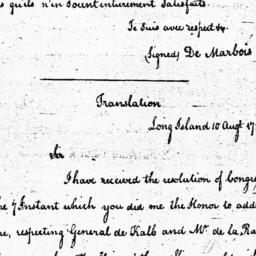 s qu'ils n'en soient entierement Satisfaits.
Je Suis avec respect &c.
(Signed) De Marbois
Translation
Long Island 10 Augt 17
Sir
I have received the resolution of Congre
he 7 Instant which you did me the Honor to add
me, respecting General de Kalb and Mr. de la Ra